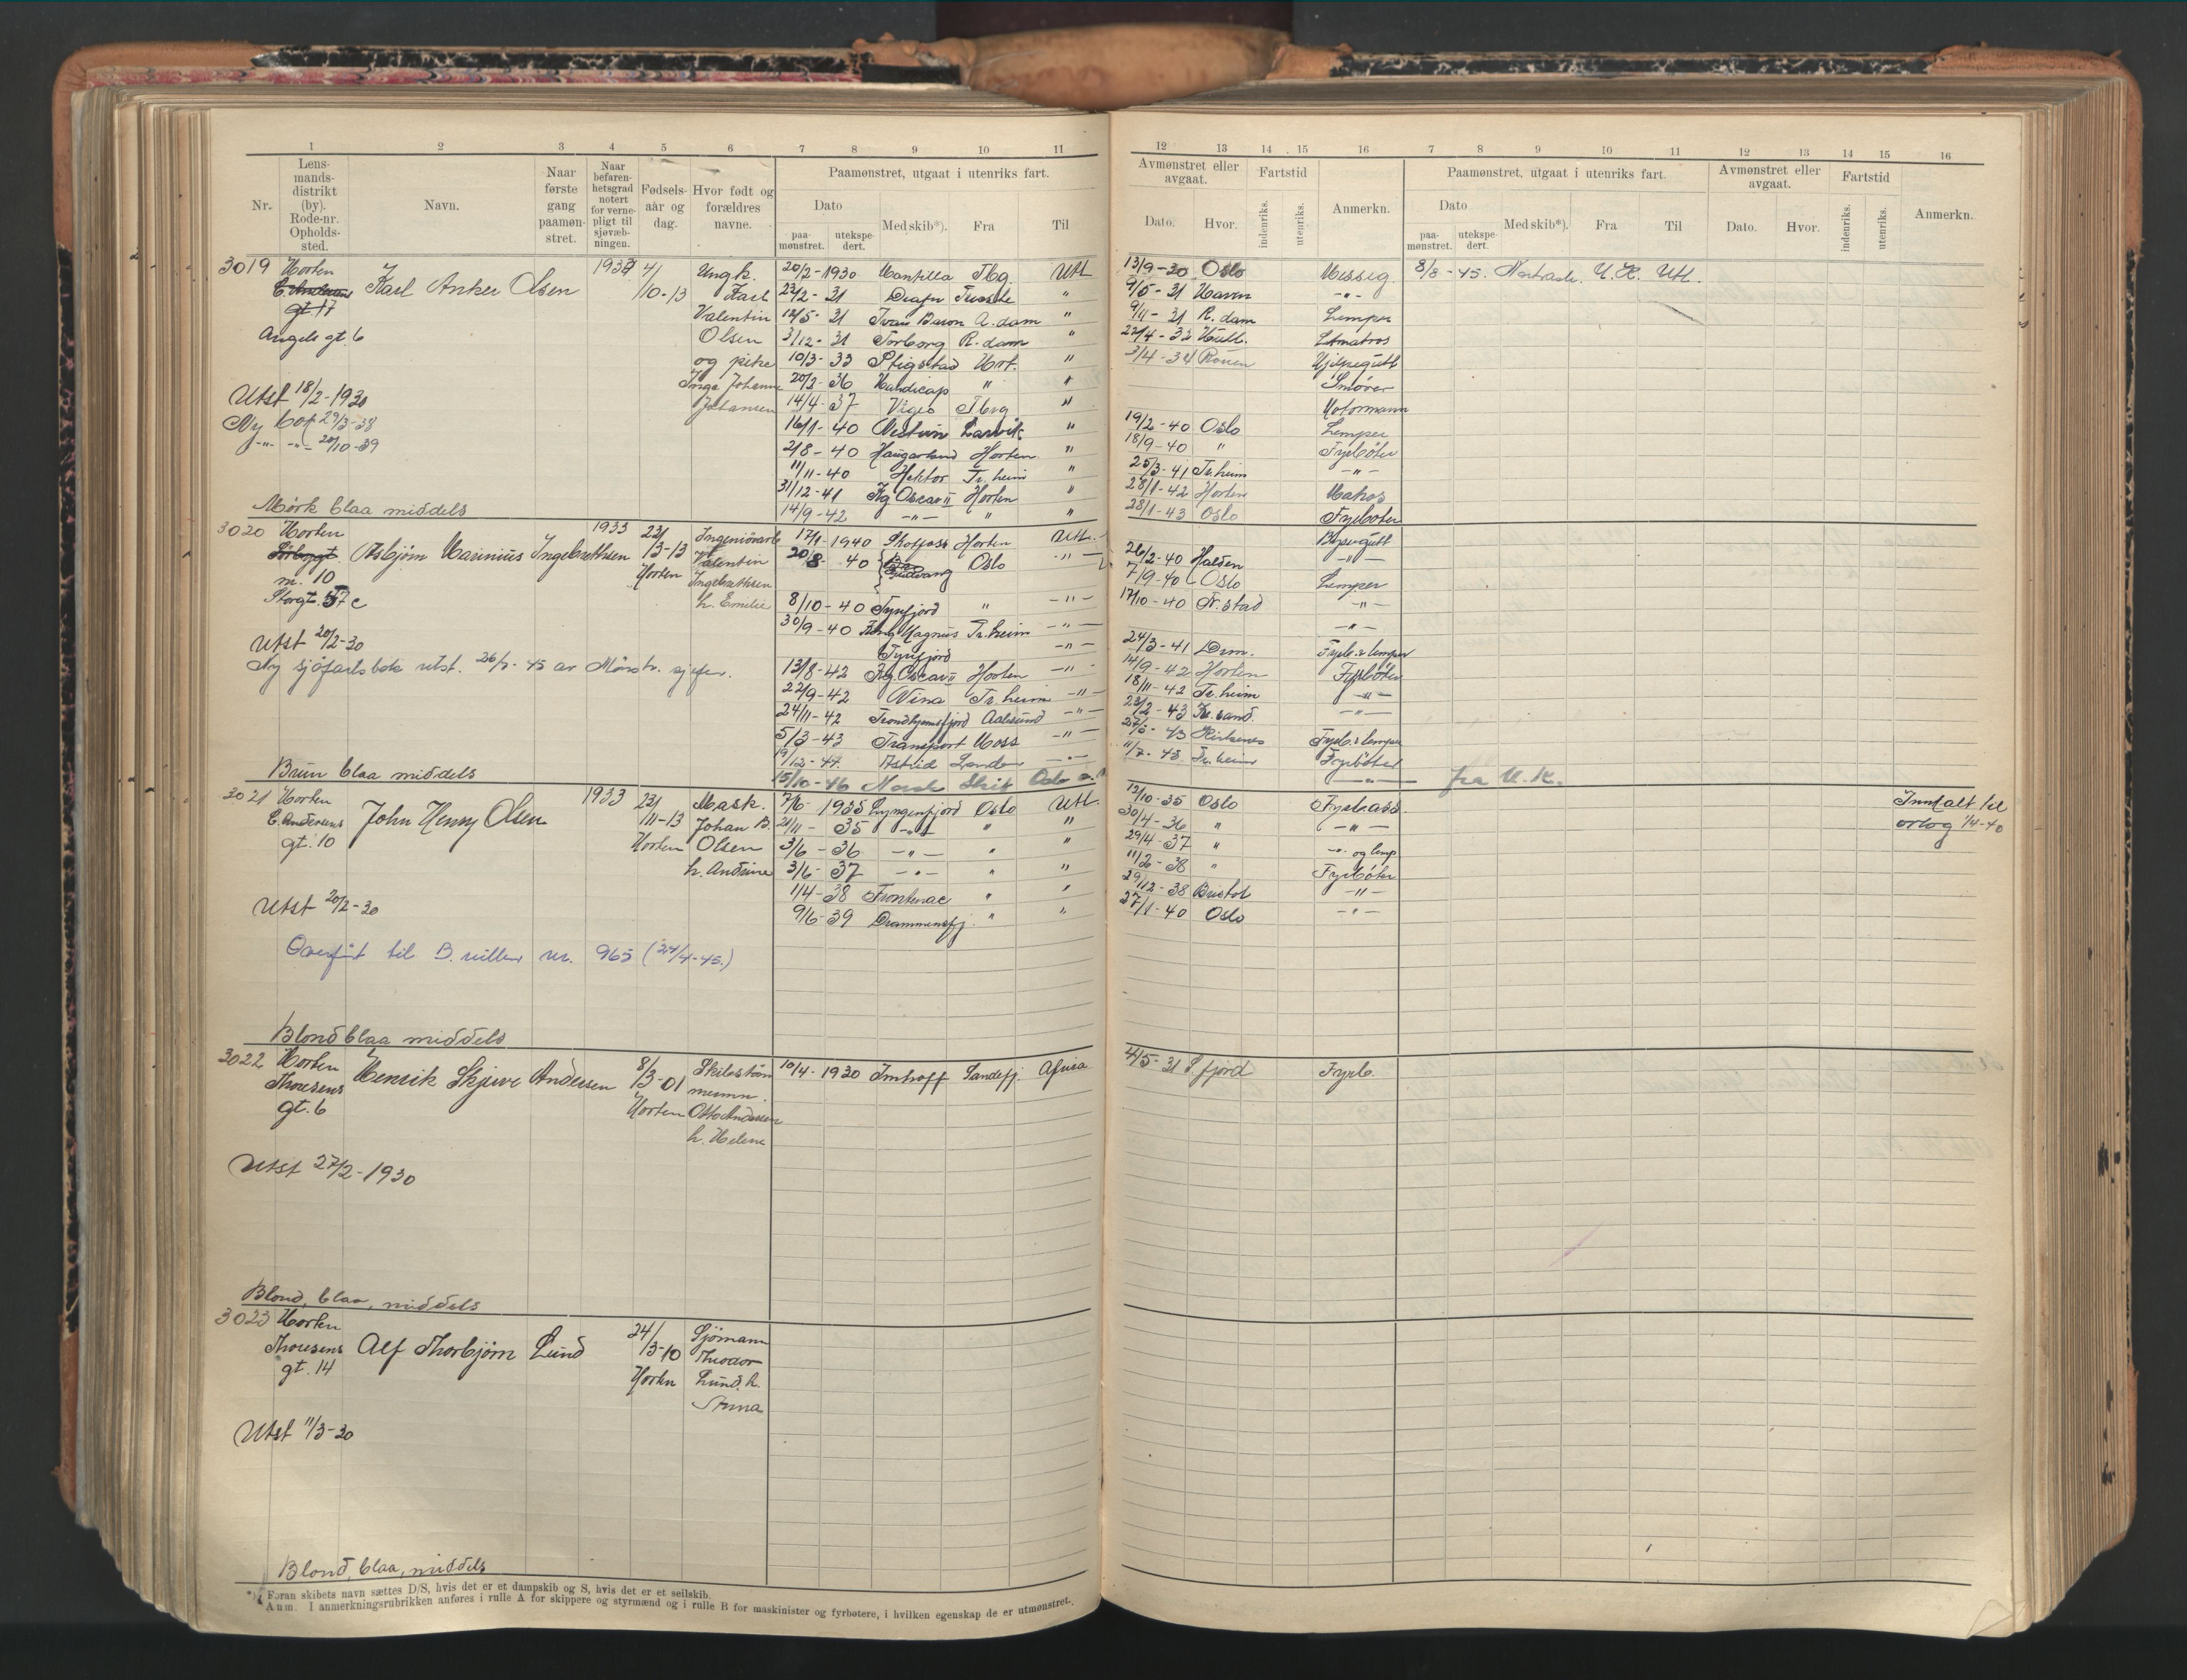 1 2 3 4 5 6 7 8 9 10 11
Nr.
Lens-
mands-
distrikt
(by).
Rode-nr.
Opholds-
sted.
Navn.
Naar
første
gang
paamøn-
stret.
Naar
befaren-
hetsgrad
notert
for verne-
pligt til
sjøvæb-
ningen.
Fødsels-
aar og
dag.
Hvor født og
forældres
navne.
Paamønstret, utgaat i utenriks fart.
Dato
paa-
mønstret.
utekspe-
dert.
Med skib*).
Fra
Til
3019 Horten
gt. 17
Angels gt. 6
Karl Anker Olsen
4/
10-13
Ung k.
Karl
Valentin
Olsen
og pike
Inga Johanne
Johansen
Utst 18/2-1930
Ny bok 29/3-38
-"- -"- 20/10-39
20/2-1930 Mantilla Tbg. Utl
23/2-31 Drafn "
12/5-31 Ivan Baron A.dam "
3/12-31 Torborg R.dam "
10/3-33 Stigstad Hort. "
20/2-36 Handicap " "
14/4-37 Vigeo Tbrg "
16/1-40 Larvik "
2/8-40 Haugarland Horten "
11/11-40 Hektor Tr.heim "
31/12-41 Kg Oscar II Horten "
14/9-42 -"- " "
Mørk blaa middels
3020 Horten
m. 10
Storgt. 57 c
Asbjørn Marinius Ingebrethsen
1933
23/
13-13
Horten
Ingeniörarb
Valentin
Ingebrethsen
h. Emilie
Utst 20/2-30
Ny sjøfartsbok utst. 26/2-45 av Mönstr. sjefen.
17/1-1940 Skotfoss Horten Utl.
20/8-40 Oslo -"-
8/10-40 Tyrifjord " -"-
30/9-40 Kong Magnus Tr.heim -"-
Tyrifjord -"-
13/8-42 Kg. Oscar II Horten -"-
22/9-42 Nina Tr.heim -"-
24/11-42 Trondhjemsfjord Aalesund -"-
5/3-43 Transport Moss -"-
19/12-44 Astrid -"-
15/10-46 Norsk Skip Oslo
Brun blaa middels
3021 Horten
C. Andersens
gt. 10
John Henry Olsen
1933
23/
11-13
Horten
Mask.
Johan B.
Olsen
h. Andrine
Utst 20/2-30
Overført til B. rullen nr. 965 (24/4-45.)
7/6-1935 Lyngenfjord Oslo Utl.
21/11-35 -"- " "
3/6-36 -"- " "
3/6-37 -"- " "
1/4-38 Frontenac " "
9/6-39 Drammensfj. " "
Blond blaa middels
3022 Horten
Thoresens
gt. 6
Henrik Skjeve Andersen
8/
3-01
Horten
Otto Andersen
h. Helene
Utst 27/2-1930
10/4-1930 Imhoff Sandefj.
Blond, blaa, middels
3023 Horten
Thoresens
gt. 14
Alf Thorbjørn Lund
24/
3-10
Horten
Sjömann
Theodor
Lund. h.
Anna
Utst 11/3-30
Blond, blaa, middels
*) Foran skibets navn sættes D/S, hvis det er et dampskib og S, hvis det er et seilskib.
Anm. I anmerkningsrubrikken anføres i rulle A for skippere og styrmænd og i rulle B for maskinister og fyrbøtere, i hvilken egenskap de er utmønstret.
12 13 14 15 16 7 8 9 10 11 12 13 14 15 16
Avmønstret eller
avgaat.
Dato. Hvor.
Fartstid
indenriks. utenriks.
Anmerkn.
Paamønstret, utgaat i utenriks fart.
Dato
paa-
mønstret.
utekspe-
dert.
Med skib*). Fra Til
Avmønstret eller
avgaat.
Dato. Hvor.
Fartstid
indenriks. utenriks.
Anmerkn.
13/9-30 Oslo Messig 8/8-45. U.K. Utl.
9/5-31 -"-
9/11-31 R.dam Lemper
22/4-32 Hull. Létmatros
3/4-34 Rouen Hjelpegutt
Smører
Motormann
19/2-40 Oslo Lemper
18/9-40 " Fyrböter
25/3-41 Tr.heim -"-
28/1-42 Horten Matros
28/1-43 Oslo Fyrböter
Byssegutt
26/2-40 Halden -"-
7/9-40 Oslo Lemper
17/10-40 Fr.stad -"-
-"-
24/3-41 Drm. Fyrb. & lemper
14/9-42 Horten Fyrböter
18/11-42 Tr.heim -"-
23/2-43 Kr.sand. -"-
27/5-43 Kirkenes Fyrb. & lemper
11/7-45. Tr.heim Fyrböter
-"- fra U.K.
12/10-35 Oslo Fyrb.ass. Innkalt til
orlog 1/4-40
30/4-36 " -"-
29/4-37 " -"- og lemp
11/2-38 " Fyrböter
29/12-38 Bristol -"-
27/1-40 Oslo -"-
4/5-31 S.fjord Fyrb.